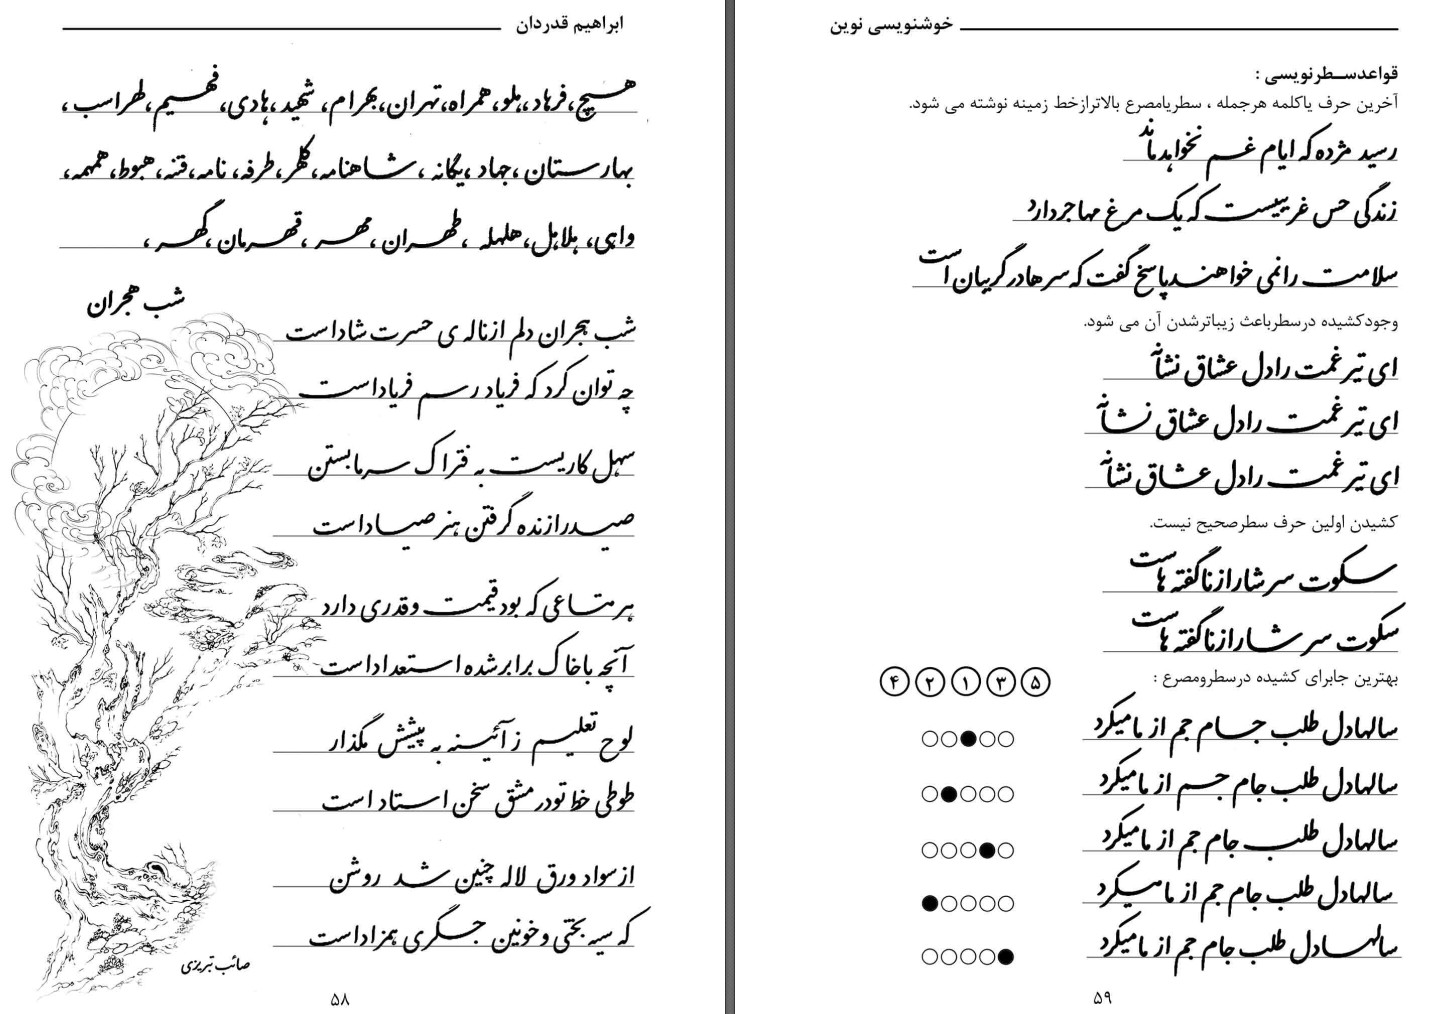 ابراهیم قدردان
هیچ، فرهاد، پهلو، همراه، تهران، بهرام، شهید، هادی، فهیم، طهراسب،
بهارستان، جهاد، یگانه، شاهنامه، کلهر، طرفه، نامه، فتنه، هبوط، همهمه،
واهی، هلاهل، هلهله، طهران، مهر، قهرمان، گهر،
شب هجران
شب هجران دلم از ناله ی حسرت شاد است
چه توان کرد که فریاد رسم فریاد است
سهل کاریست به فتراک سر ما بستن
صید را زنده گرفتن هنر صیاد است
هر متاعی که بود قیمت و قدری دارد
آنچه با خاک برابر شده استعداد است
لوح تعلیم ز آئینه به پیشش مگذار
طوطی خط تو در مشق سخن استاد است
از سواد ورق لاله چنین شد روشن
که سیه بختی و خونین جگری همزاد است
صائب تبریزی
۵۸
خوشنویسی نوین
قواعدسطرنویسی :
آخرین حرف یاکلمه هرجمله ، سطریامصرع بالاترازخط زمینه نوشته می شود.
رسید مژده که ایام غم نخواهد ماند
زندگی حس غریبیست که یک مرغ مهاجر دارد
سلامت را نمی خواهند پاسخ گفت که سرها در گریبان است
وجودکشیده درسطرباعث زیباترشدن آن می شود.
ای تیر غمت را دل عشاق نشانه
ای تیر غمت را دل عشاق نشانه
ای تیر غمت را دل عشاق نشانه
کشیدن اولین حرف سطرصحیح نیست.
سکوت سرشار از ناگفته هاست
سکوت سرشار از ناگفته هاست
بهترین جابرای کشیده درسطرومصرع :
۵ ۳ ۱ ۲ ۴
سالها دل طلب جام جم از ما میکرد
سالها دل طلب جام جم از ما میکرد
سالها دل طلب جام جم از ما میکرد
سالها دل طلب جام جم از ما میکرد
سالها دل طلب جام جم از ما میکرد
۵۹